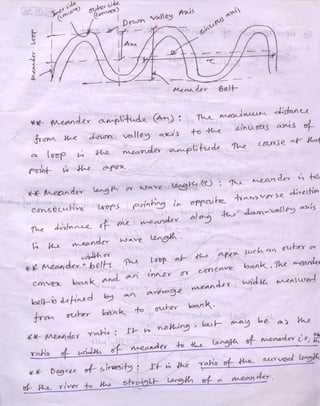 Inner side (concave)
outer side (convex)
Down Valley Axis
sinuous axis
Meander Loop
Am
τ
Meander Belt
** Meander amplitude (Am) : The maximum distance
from the down valley axis to the sinuous axis of
a loop is the meander amplitude. The course at that
point is the apex
** Meander length or wave length (τ) : The meander is two
consecutive loops pointing in opposite transverse direction
The distance of one meander along the down-valley axis
is the meander wave length.
** Meander width or belt : The loop at the apex such an outer or
convex bank and an inner or concave bank. The meander
belt is defined by an average meander width measured
from outer bank to outer bank.
** Meander ratio : It is nothing, but may be as the
ratio of width of meander to the length of meander i.e,
** Degree of sinosity : It is the ratio of the curved length
of the river to the straight length of a meander.